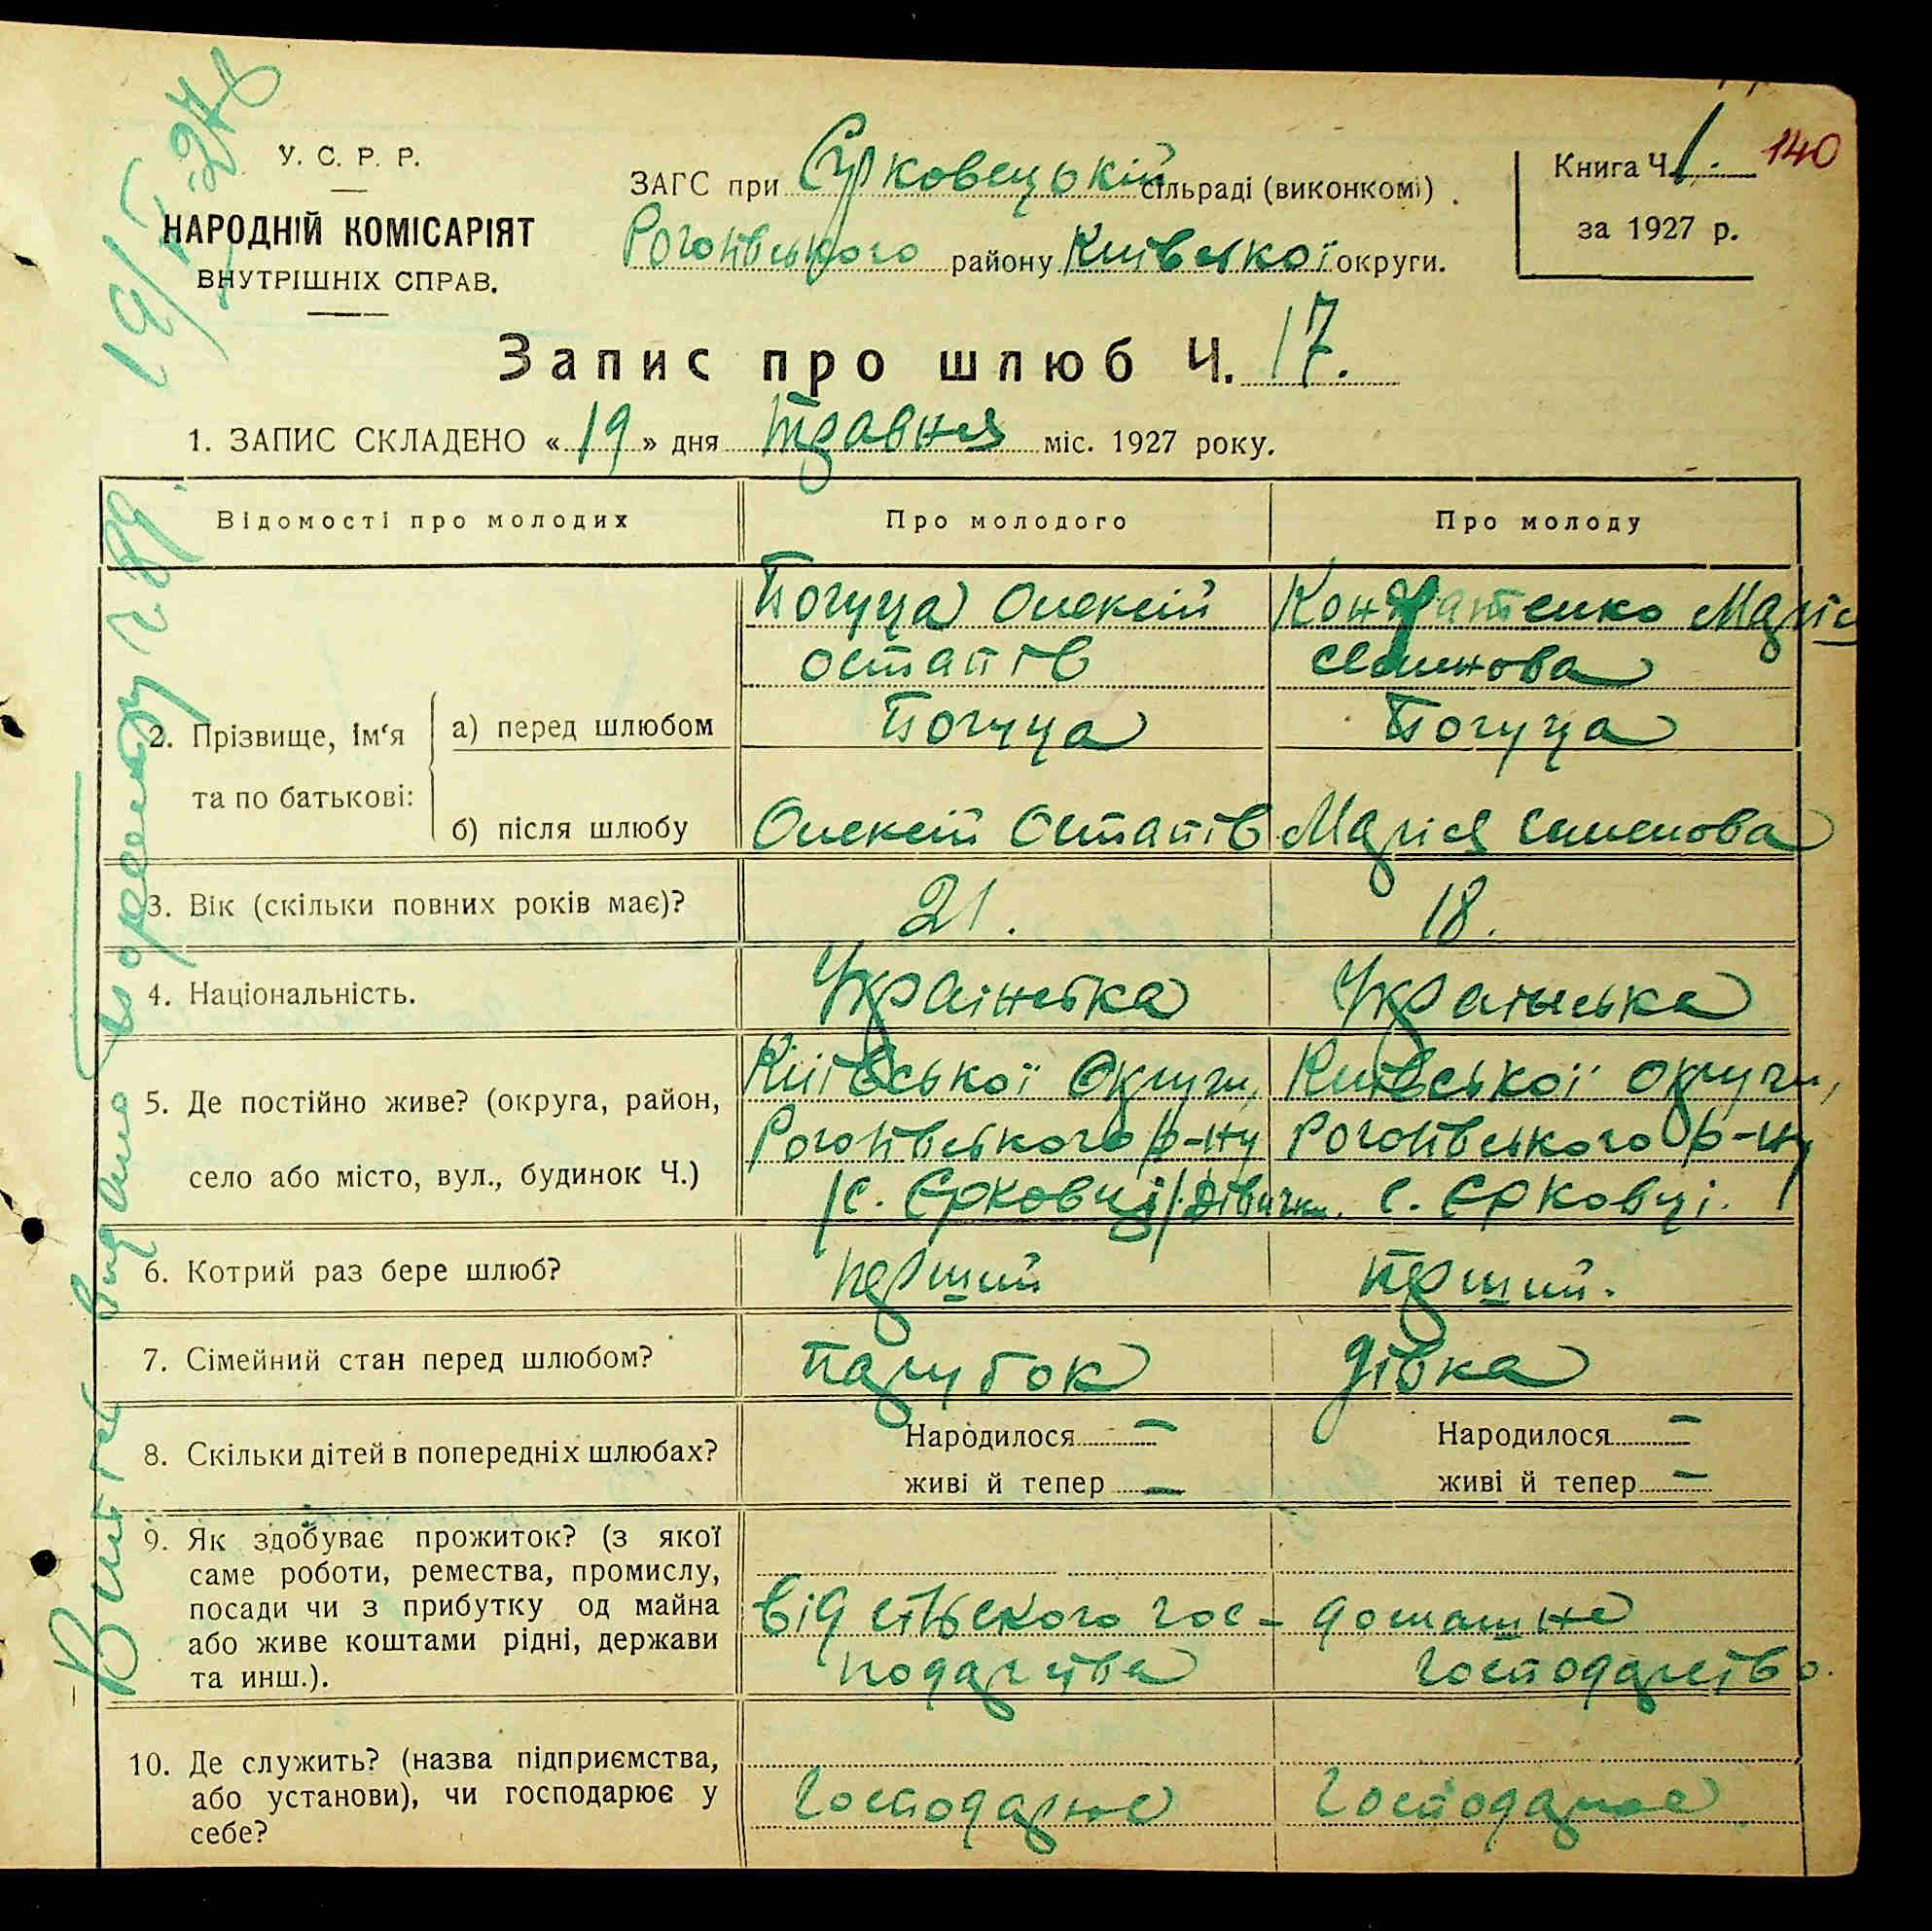 У. С. Р. Р.
НАРОДНІЙ КОМІСАРІЯТ
ВНУТРІШНІХ СПРАВ.
ЗАГС при Єрковецькій сільраді (виконкомі)
Рогозівського району Київської округи.
Книга Ч. 1. 140
за 1927 р.
Запис про шлюб Ч. 17.
1. ЗАПИС СКЛАДЕНО « 19 » дня травня міс. 1927 року.
Відомості про молодих
Про молодого
Про молоду
2. Прізвище, ім'я та по батькові:
а) перед шлюбом
Погуца Олексій
Остапів
Кондратенко Марія
Семенова
б) після шлюбу
Погуца
Олексій Остапів
Погуца
Марія Семенова
3. Вік (скільки повних років має)?
21.
18.
4. Національність.
Українська
Українська
5. Де постійно живе? (округа, район,
село або місто, вул., будинок Ч.)
Київської Округи,
Рогозівського р-ну
/с. Єрковці/. Дівички.
Київської округи,
Рогозівського р-ну
с. Єрковці.
6. Котрий раз бере шлюб?
перший
перший.
7. Сімейний стан перед шлюбом?
парубок
дівка
8. Скільки дітей в попередніх шлюбах?
Народилося —
живі й тепер —
Народилося —
живі й тепер —
9. Як здобуває прожиток? (з якої
саме роботи, ремества, промислу,
посади чи з прибутку од майна
або живе коштами рідні, держави
та инш.).
від сільского гос-
подарства
домашнє
господарство.
10. Де служить? (назва підприємства,
або установи), чи господарює у
себе?
Господарює
Господарює
Витяг видано
19/V-27